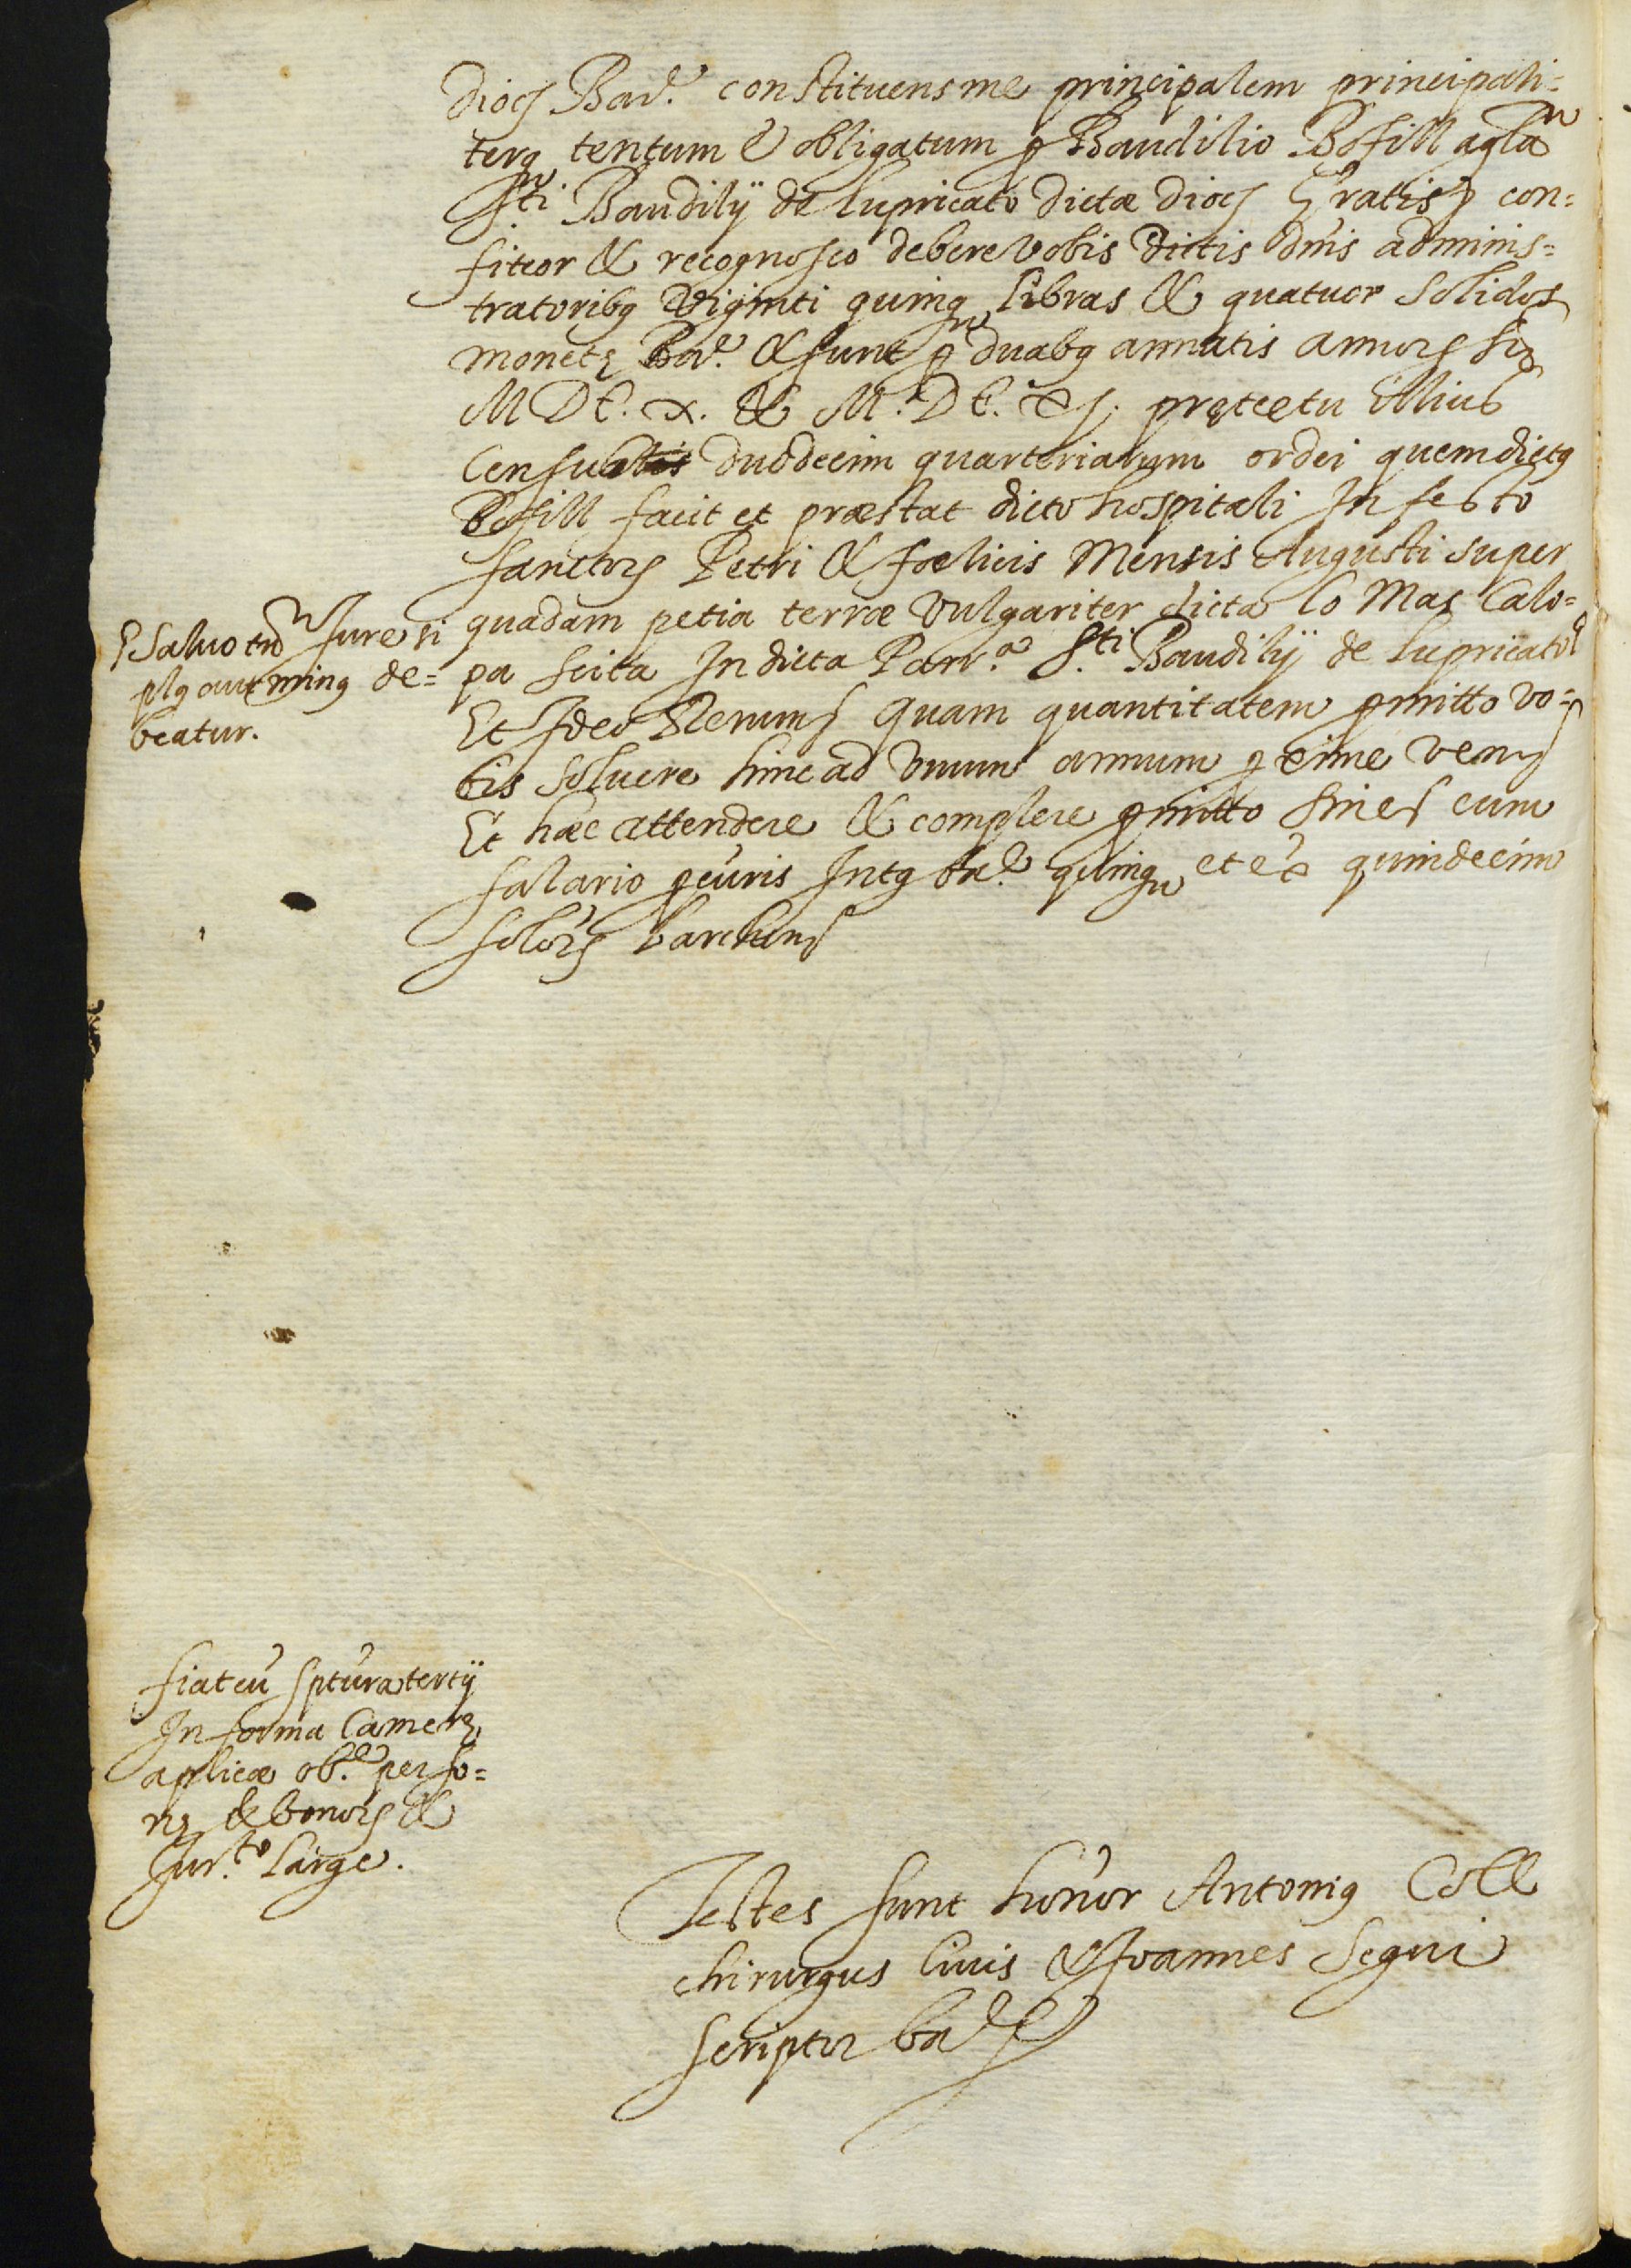 Diocs Bar.e constituens me principalem principali=
terq tentum & obligatum p Baudilio Bofill agla
Sti Baudilij de lupricato dictæ diocs Gratis con=
fiteor & recognosco debere vobis dictis dnis adminis=
tratoribq viginti quinq libras & quatuor solidos
monetę Bar.e & sunt p duabq annatis annors
MDC. x. & M.DC. xj. pretectu illius
Censualis duodecim quarteriarum ordei quem dictq
Bofill facit et præstat dicto hospitali In festo
sanctors Petri & fœlicis Mensis Augusti super
quadam petia terræ vulgariter dicta lo Mas Calo=
pa scita In dicta Parr.a S.ti Baudilij de lupricato
Et Ideo Renuns Quam quantitatem pmitto vo=
bis soluere hinc ad vnum annum p xime vens
Et hæc attendere & complere pmitto sines cum
salario pcuris Intq Ba.e quinq et ex quindecim
solors barchins
Saluo tn Jure si
plq aut minq de=
beatur.
fiat cu sptura tertij
In forma Camerę
aplicæ ob.e perso=
nę & bonors &
Jur.to large.
Testes sunt honor Antoniq Coll
chirurgus Ciuis & Joannes Segui
scriptor Ba.e